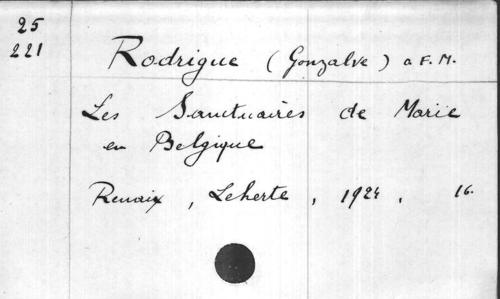 25
221
Rodrigue (Gonzalve) a F. M.
Les Sanctuaires de Marie
en Belgique
Renaix, Leherte, 1924, 16.